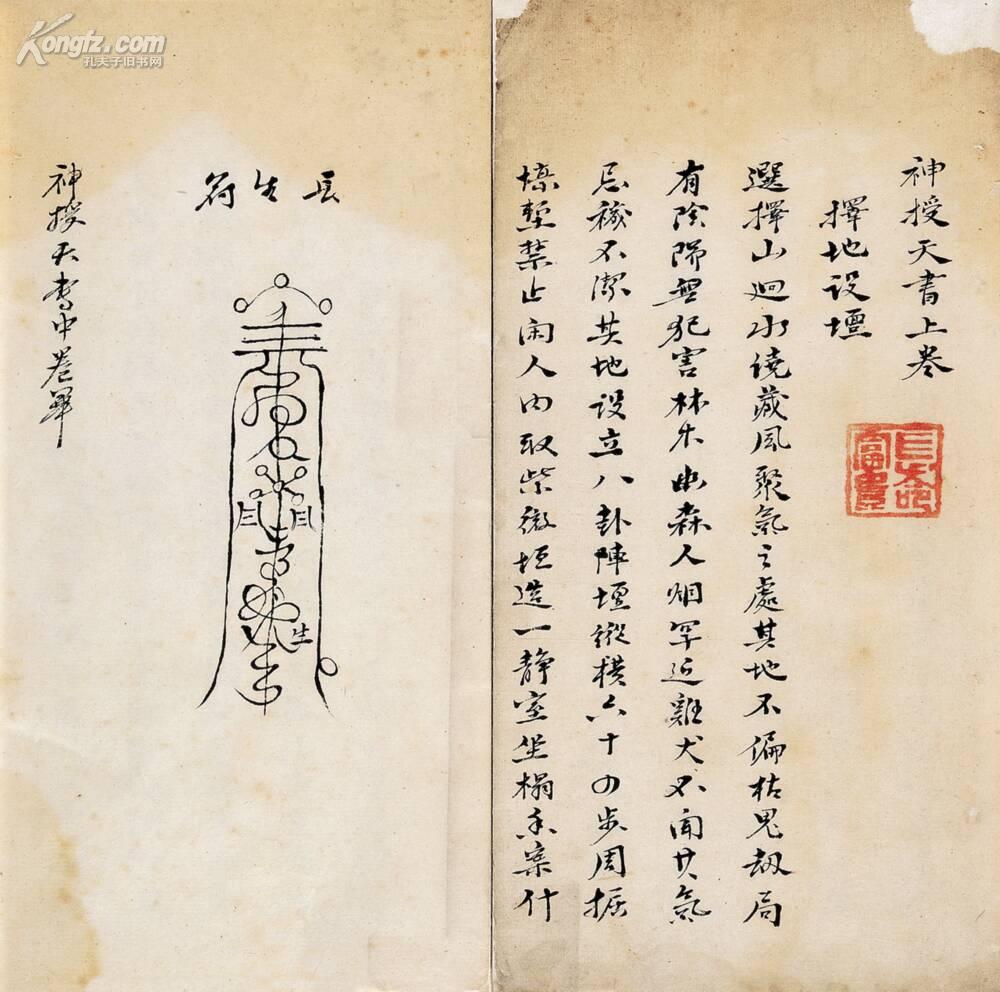 神授天書上卷
擇地設壇
選擇山迴水繞藏風聚氣之處其地不偏枯鬼劫局
有陰陽無犯害林木幽森人烟罕近雞犬不聞其氣
忌穢不潔其地設立八卦陣壇縱橫六十四步周掘
壕塹禁止闲人內取紫微垣造一靜室坐榻香案什
長生符
生
神授天書中卷畢
Kongfz.com
孔夫子旧书网